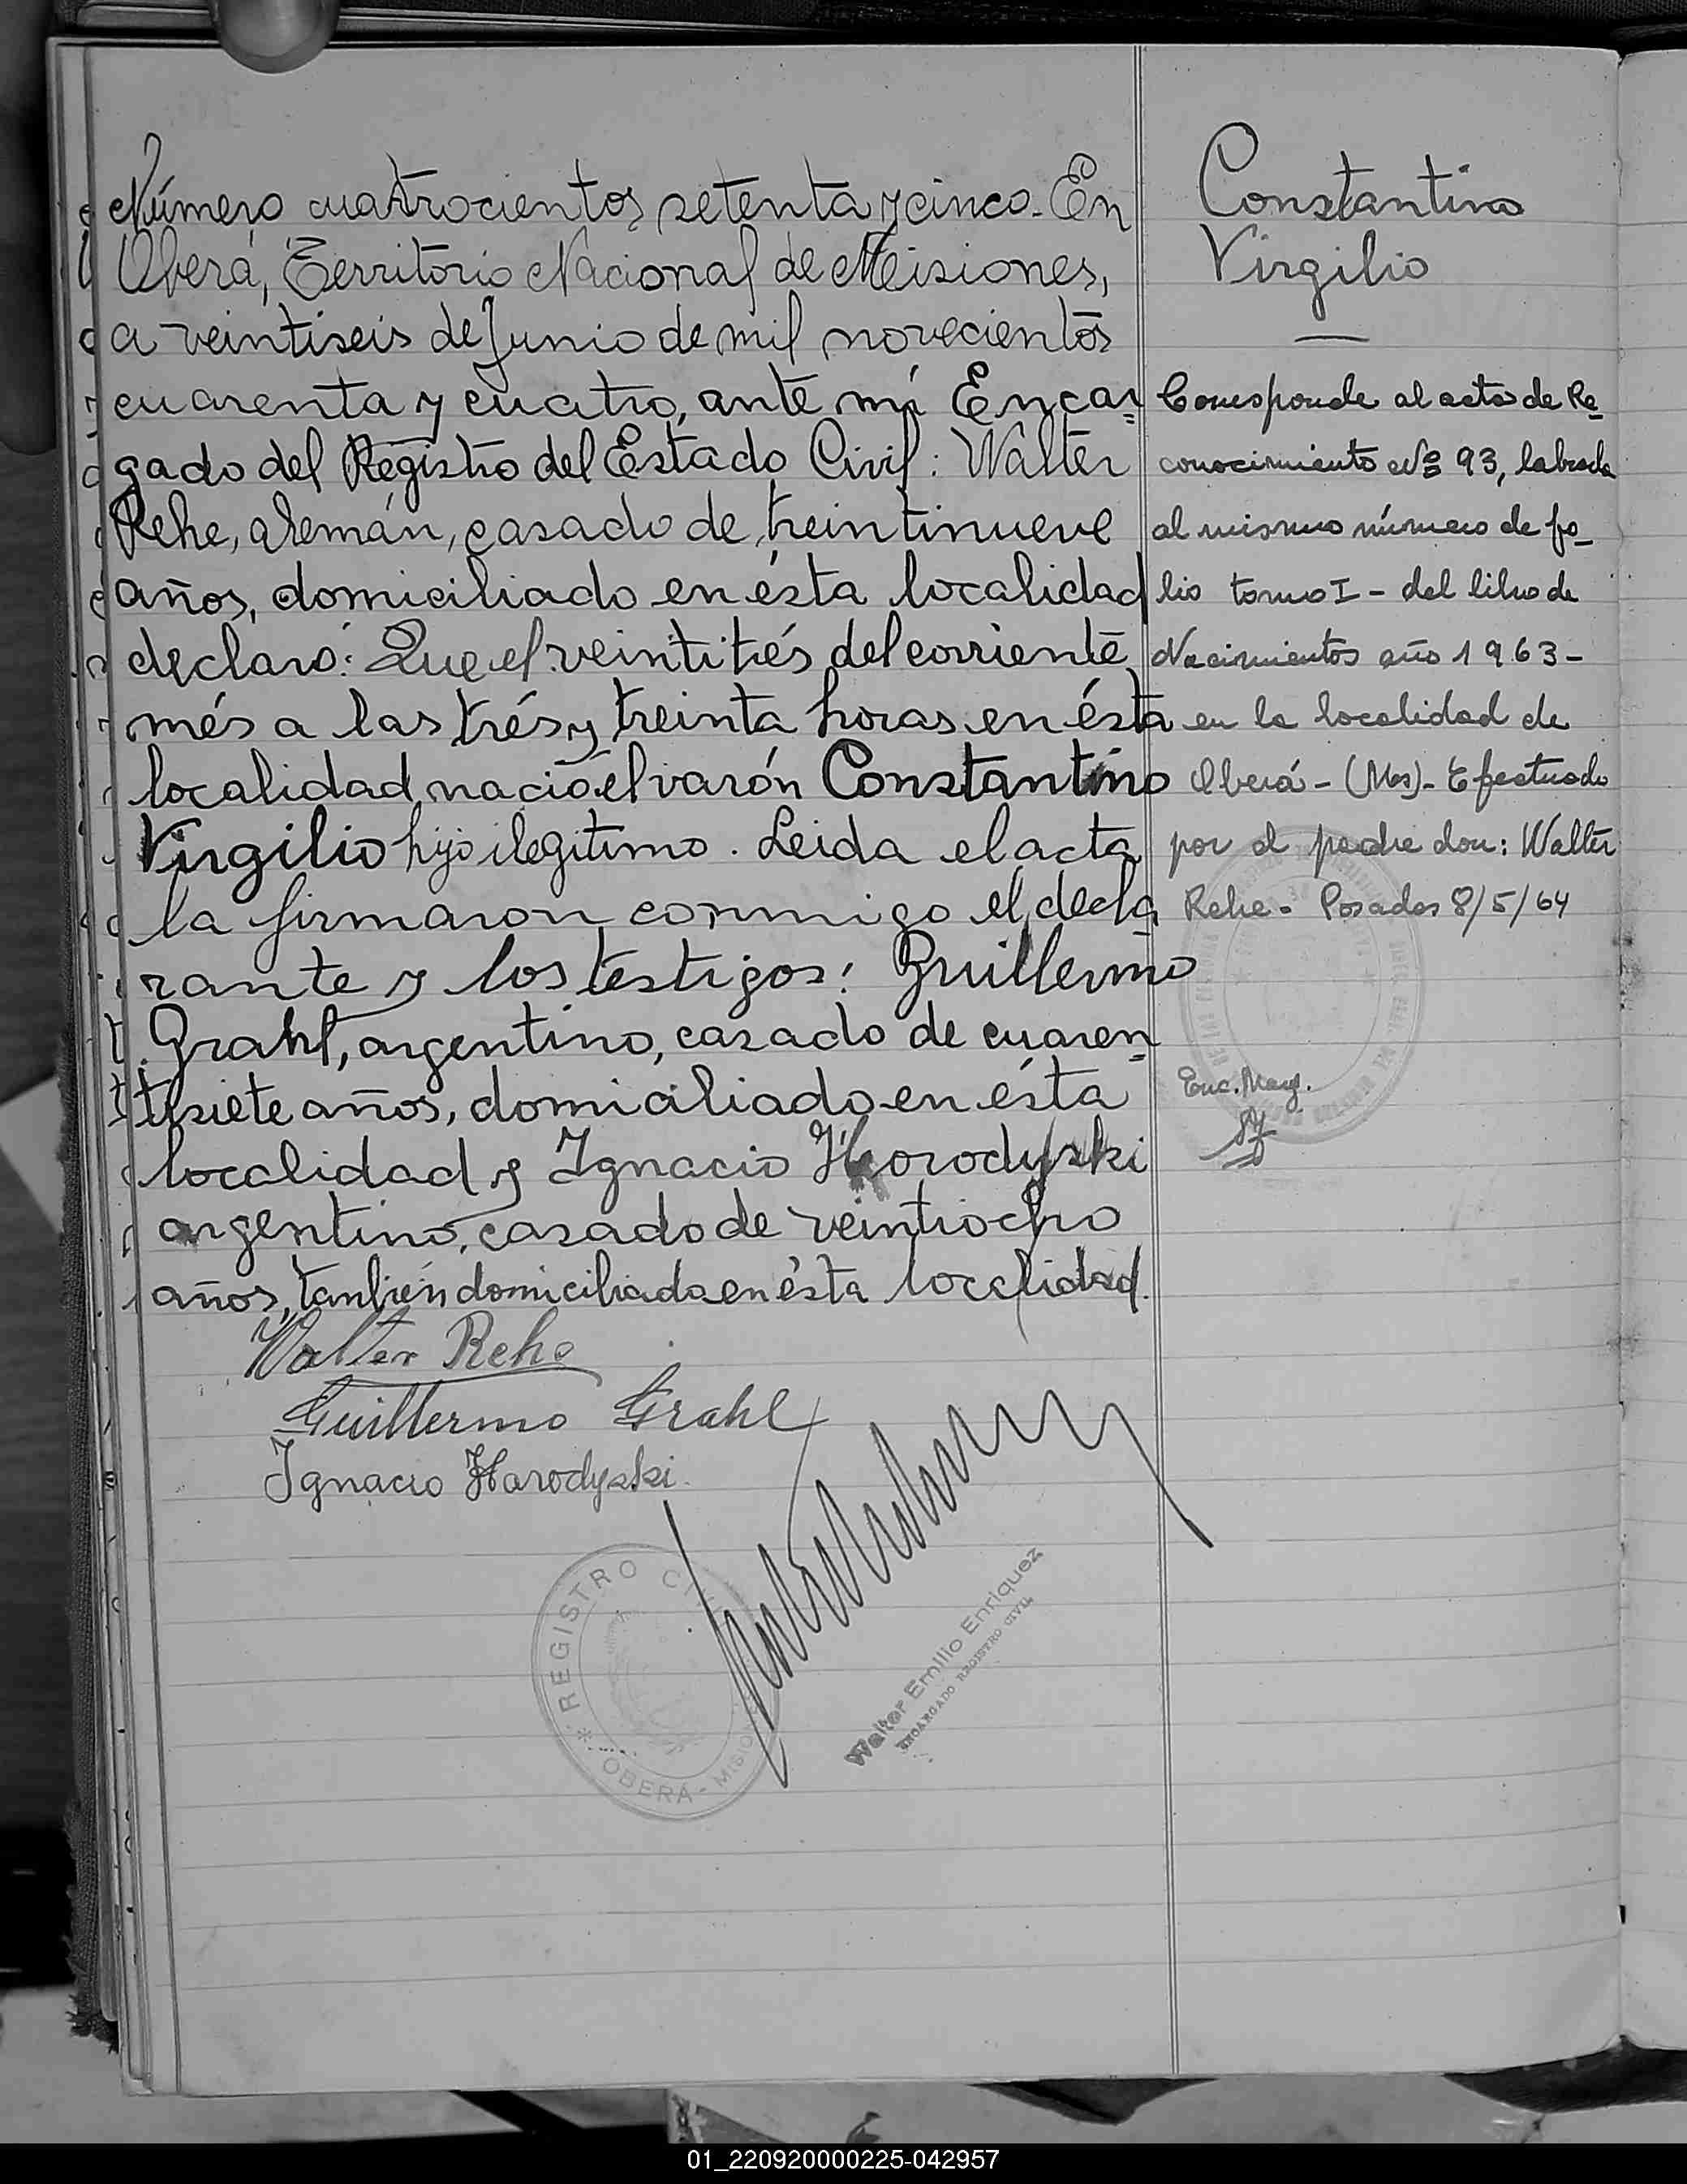 Número cuatrocientos setenta y cinco. En
Oberá, Territorio Nacional de Misiones,
a veintiseis de Junio de mil novecientos
cuarenta y cuatro, ante mí Encar
gado del Registro del Estado Civil: Walter
Rehe, alemán, casado de treintinueve
años, domiciliado en ésta localidad
declaró: Que el veintitrés del corriente
més a las trés y treinta horas en ésta
localidad nació el varón Constantino
Virgilio hijo ilegitimo. Leida el acta
la firmaron conmigo el decla
rante y los testigos: Guillermo
Grahl, argentino, casado de cuaren
tisiete años, domiciliado en ésta
localidad y Ignacio Horodyski
argentino, casado de veintiocho
años, tanbién domiciliado en ésta localidad.
Walter Rehe
Guillermo Grahl
Ignacio Horodyski
REGISTRO CIVIL
OBERÁ - MISIONES
Walter Emilio Enriquez
ENCARGADO REGISTRO CIVIL
Constantino
Virgilio
Corresponde al acta de Re
conocimiento Nº 93, labrada
al mismo número de fo
lio tomo I - del libro de
Nacimientos año 1963 -
en la localidad de
Oberá - (Mes) - Efectuado
por el padre don: Walter
Rehe - Posadas 8/5/64
Enc. Marg.
01_220920000225-042957